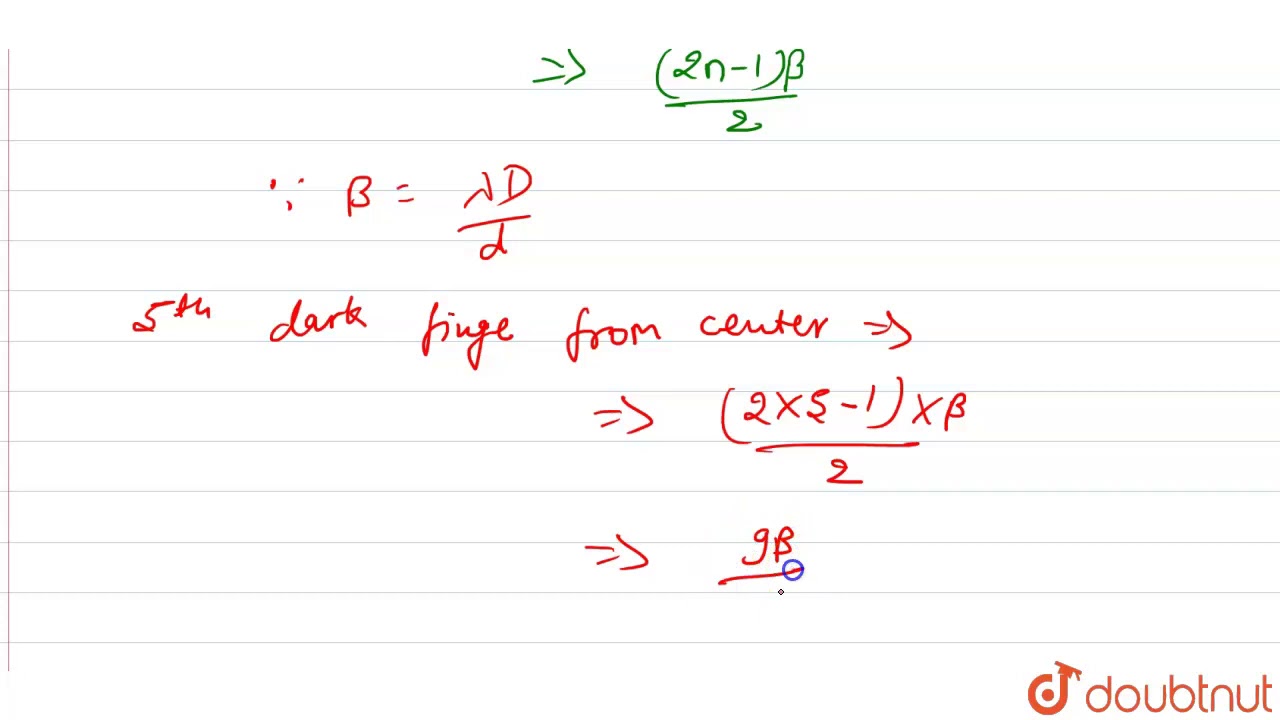 => (2n-1)β
2
∵ β = λD
d
5th dark finge from center =>
=> (2×5-1)×β
2
=> 9β
doubtnut